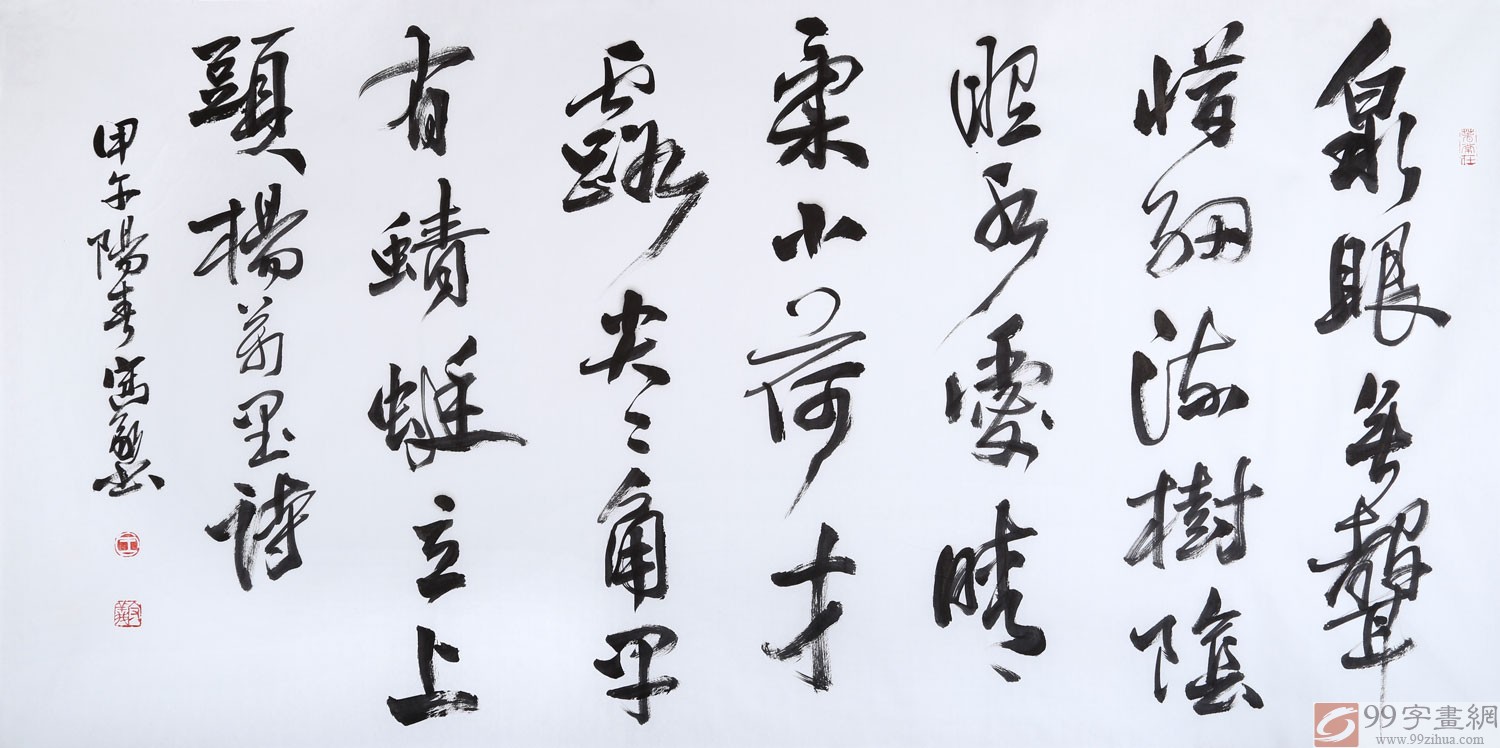 泉眼無聲
惜細流樹陰
照水愛晴
柔小荷才
露尖〻角早
有蜻蜓立上
頭楊萬里詩
甲午陽春
99字畫網
www.99zihua.com